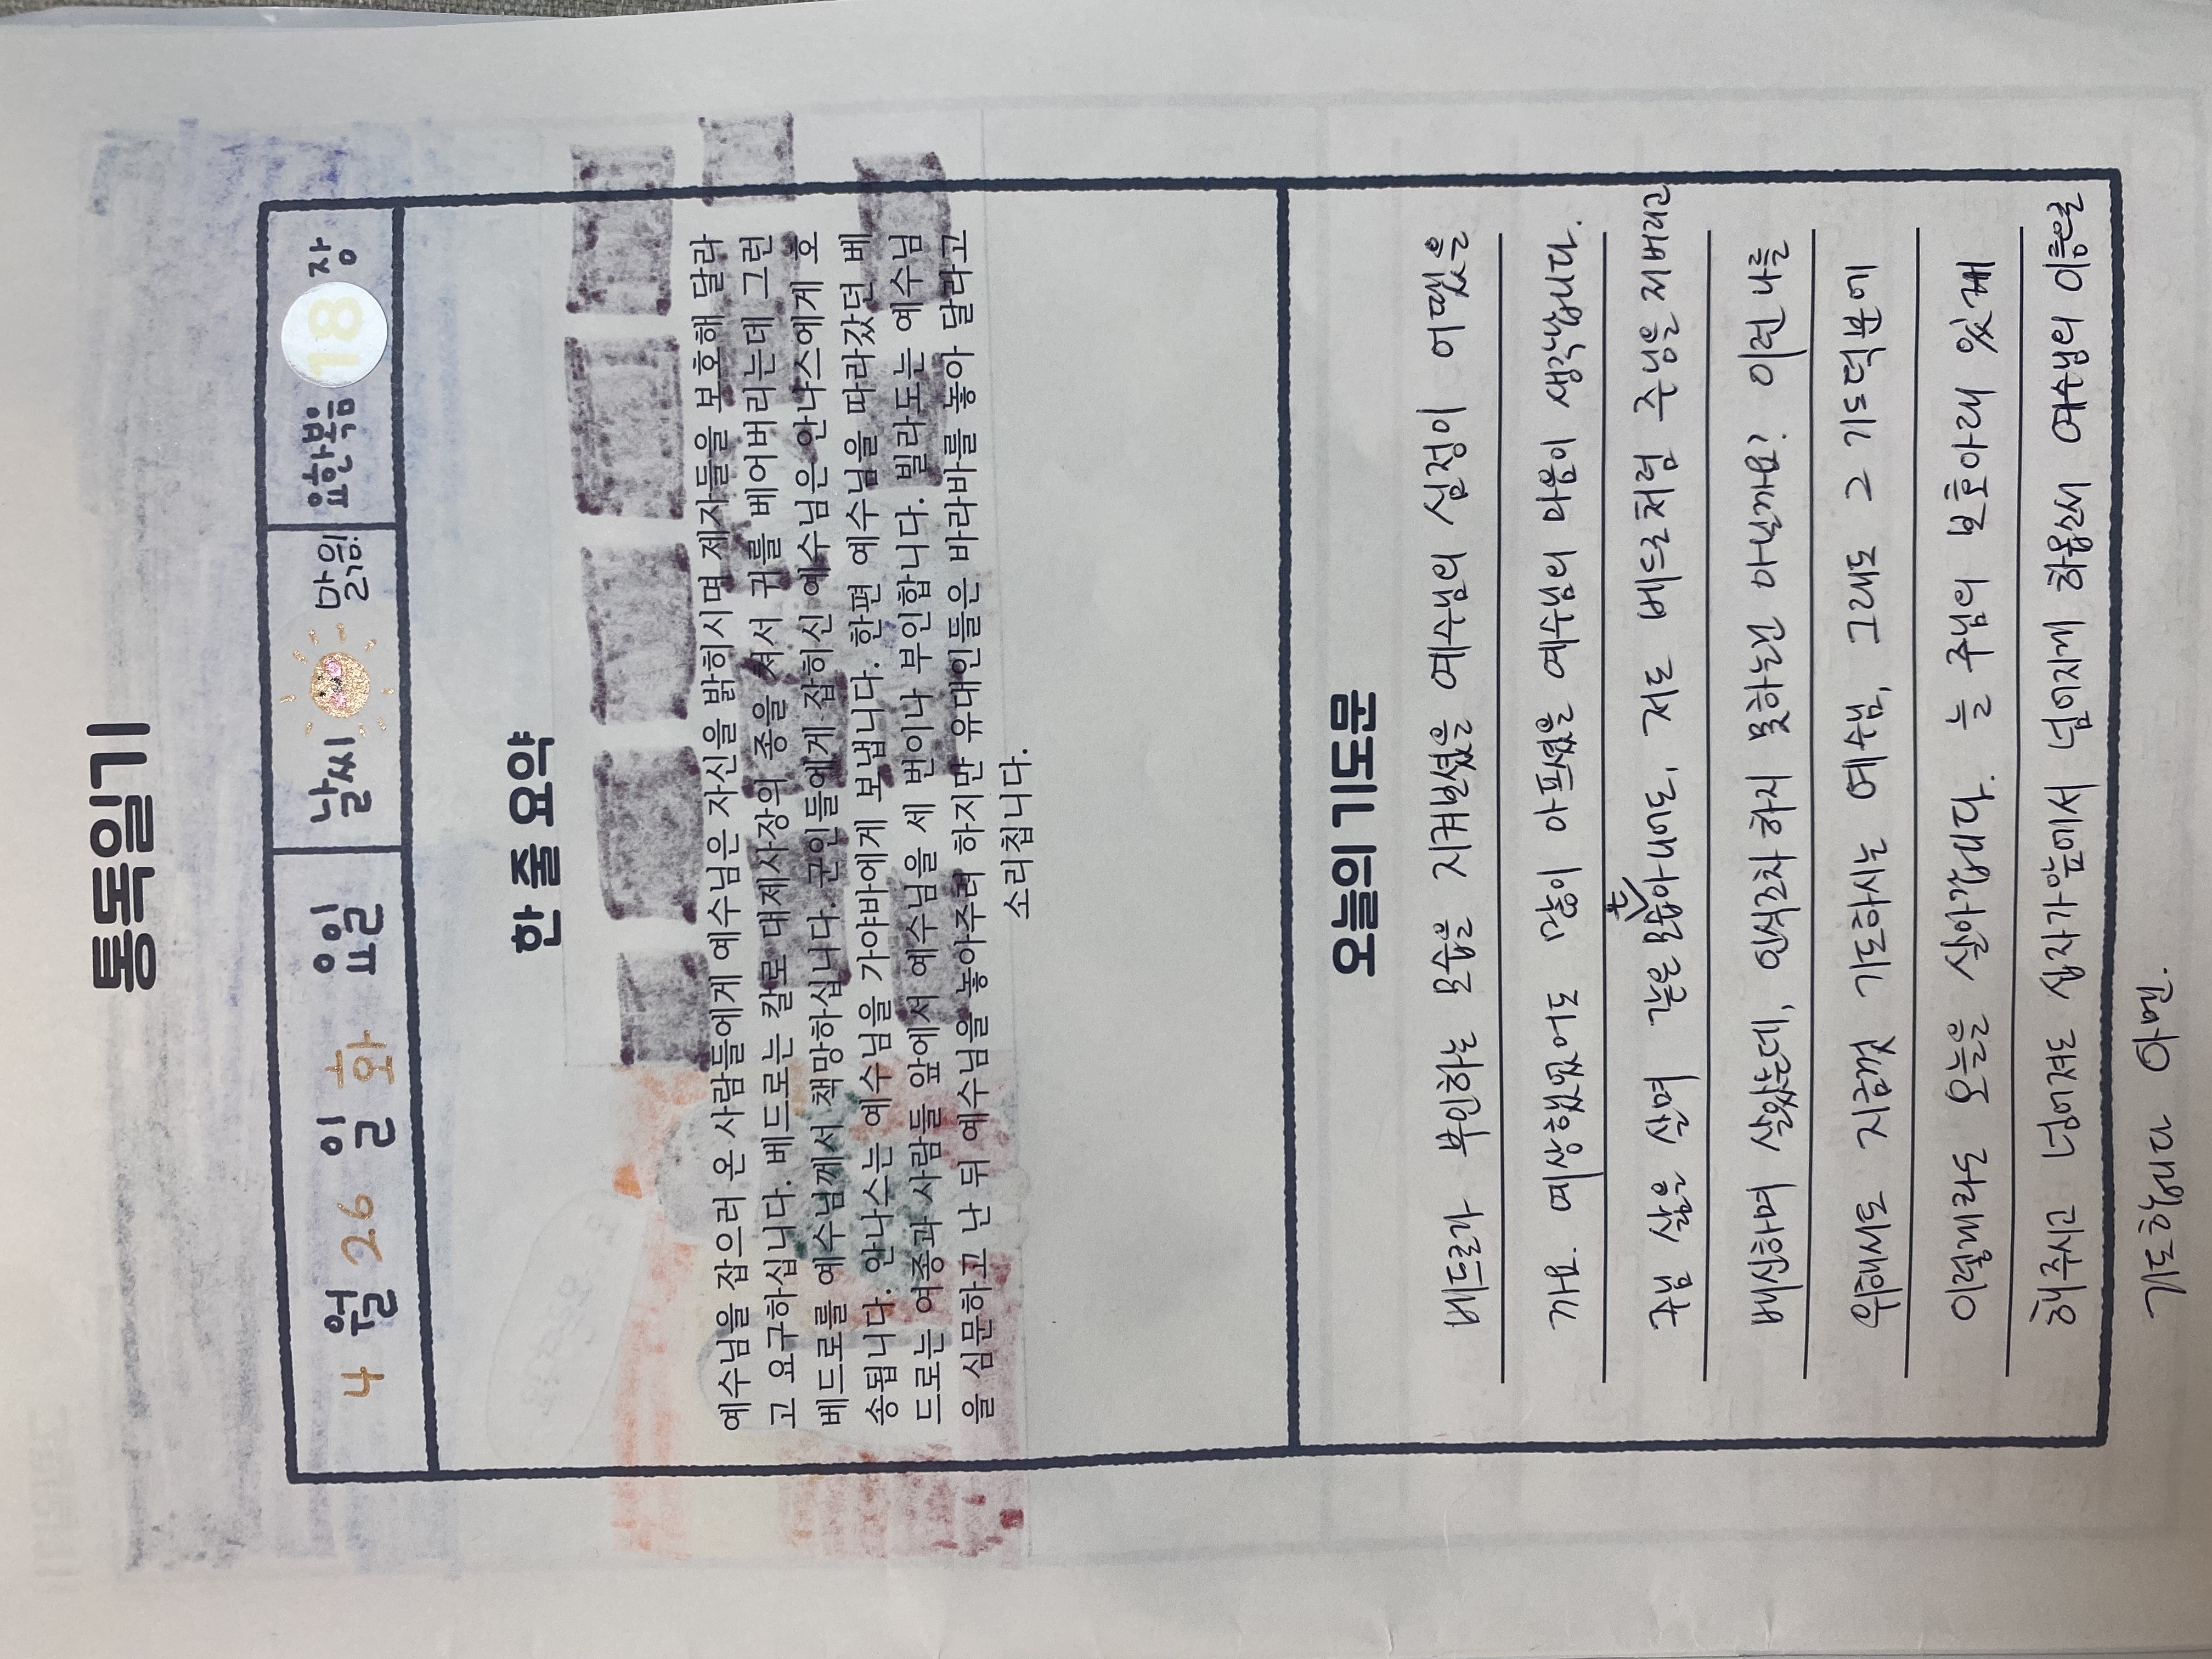 통독일기
4 월 26 일 화 요일 날씨 맑음! 요한복음 18 장
한 줄 요약
예수님을 잡으러 온 사람들에게 예수님은 자신을 밝히시며 제자들을 보호해 달라
고 요구하십니다. 베드로는 칼로 대제사장의 종을 쳐서 귀를 베어버리는데 그런
베드로를 예수님께서 책망하십니다. 군인들에게 잡히신 예수님은 안나스에게 호
송됩니다. 안나스는 예수님을 가야바에게 보냅니다. 한편 예수님을 따라갔던 베
드로는 여종과 사람들 앞에서 예수님을 세 번이나 부인합니다. 빌라도는 예수님
을 심문하고 난 뒤 예수님을 놓아주려 하지만 유대인들은 바라바를 놓아 달라고
소리칩니다.
오늘의 기도문
베드로가 부인하는 모습을 지켜보셨을 예수님의 심정이 어땠을
까요. 예상했었어도 많이 아프셨을 예수님의 마음이 생각납니다.
주님 삶을 살며 같은 모습 아니어도, 저도 베드로처럼 주님을 저버리고
배신하며 살았는데, 인식조차 하지 못하는건 아닐까요? 이런 나를
위해서도 지금껏 기도하시는 예수님, 그래도 그 기도덕분에
이렇게라도 오늘을 살아갑니다. 늘 주님의 보호아래 있게
해주시고 넘어져도 십자가 앞에서 넘어지게 하옵소서 예수님의 이름으로
기도합니다 아멘.